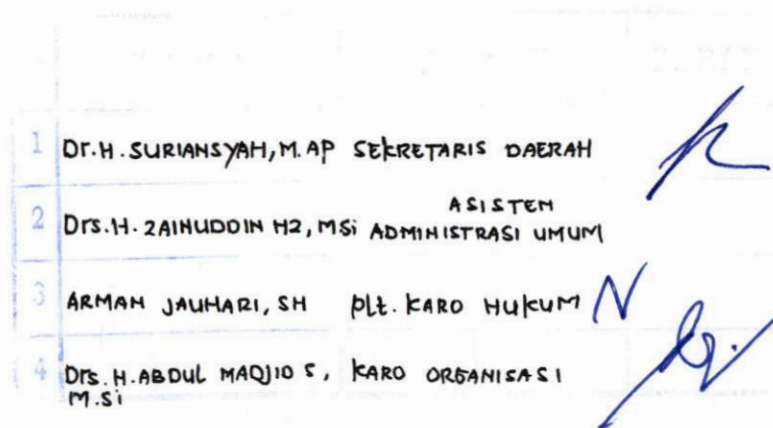 1 Dr. H. SURIANSYAH, M. AP SEKRETARIS DAERAH
2 Drs. H. ZAINUDDIN HZ, MSi ASISTEN ADMINISTRASI UMUM
3 ARMAN JAUHARI, SH Plt. KARO HUKUM
4 Drs. H. ABDUL MADJID S, KARO ORGANISASI
M.Si